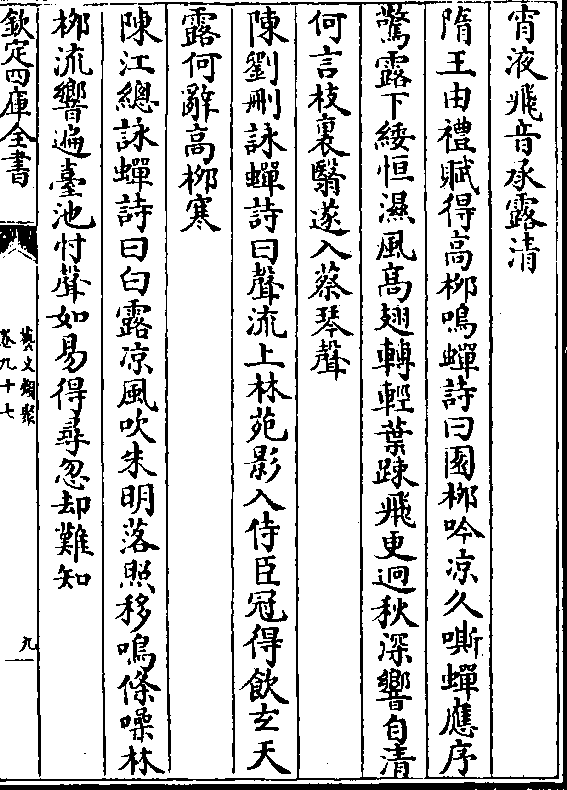 宵液飛音承露清
隋王由禮賦得高柳鳴蟬詩曰園柳吟凉久嘶蟬應序
驚露下緌恒濕風高翅轉輕葉踈飛更迥秋深響自清
何言枝裏翳遂入蔡琴聲
陳劉刪詠蟬詩曰聲流上林苑影入侍臣冠得飲玄天
露何辭高柳寒
陳江總詠蟬詩曰白露凉風吹朱明落照移鳴條噪林
柳流響遍臺池忖聲如易得尋忽却難知
欽定四庫全書
藝文類聚
卷九十七
九